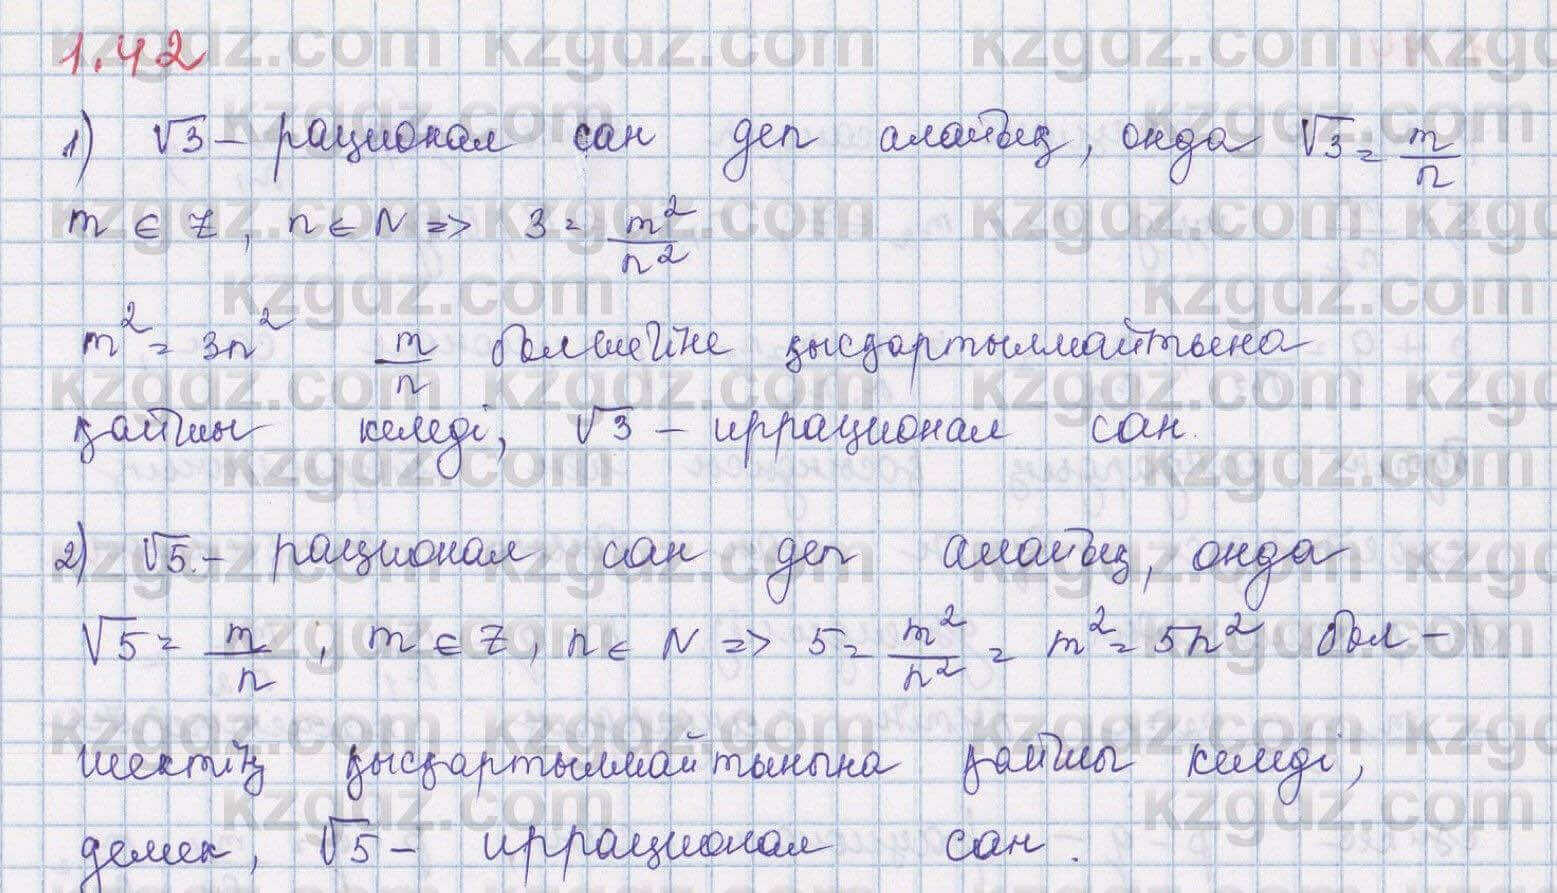 1.42
1) √3 – рационал сан деп алайық, онда √3 = m/n
m ∈ Z, n ∈ N => 3 = m²/n²
m² = 3n² m/n бөлшегіне қысқартылмайтына
қайшы келеді, √3 – иррационал сан.
2) √5 – рационал сан деп алайық, онда
√5 = m/n, m ∈ Z, n ∈ N => 5 = m²/n² = m² = 5n² бөл–
шектің қысқартылмайтынына қайшы келеді,
демек, √5 – иррационал сан.
kzgdz.com